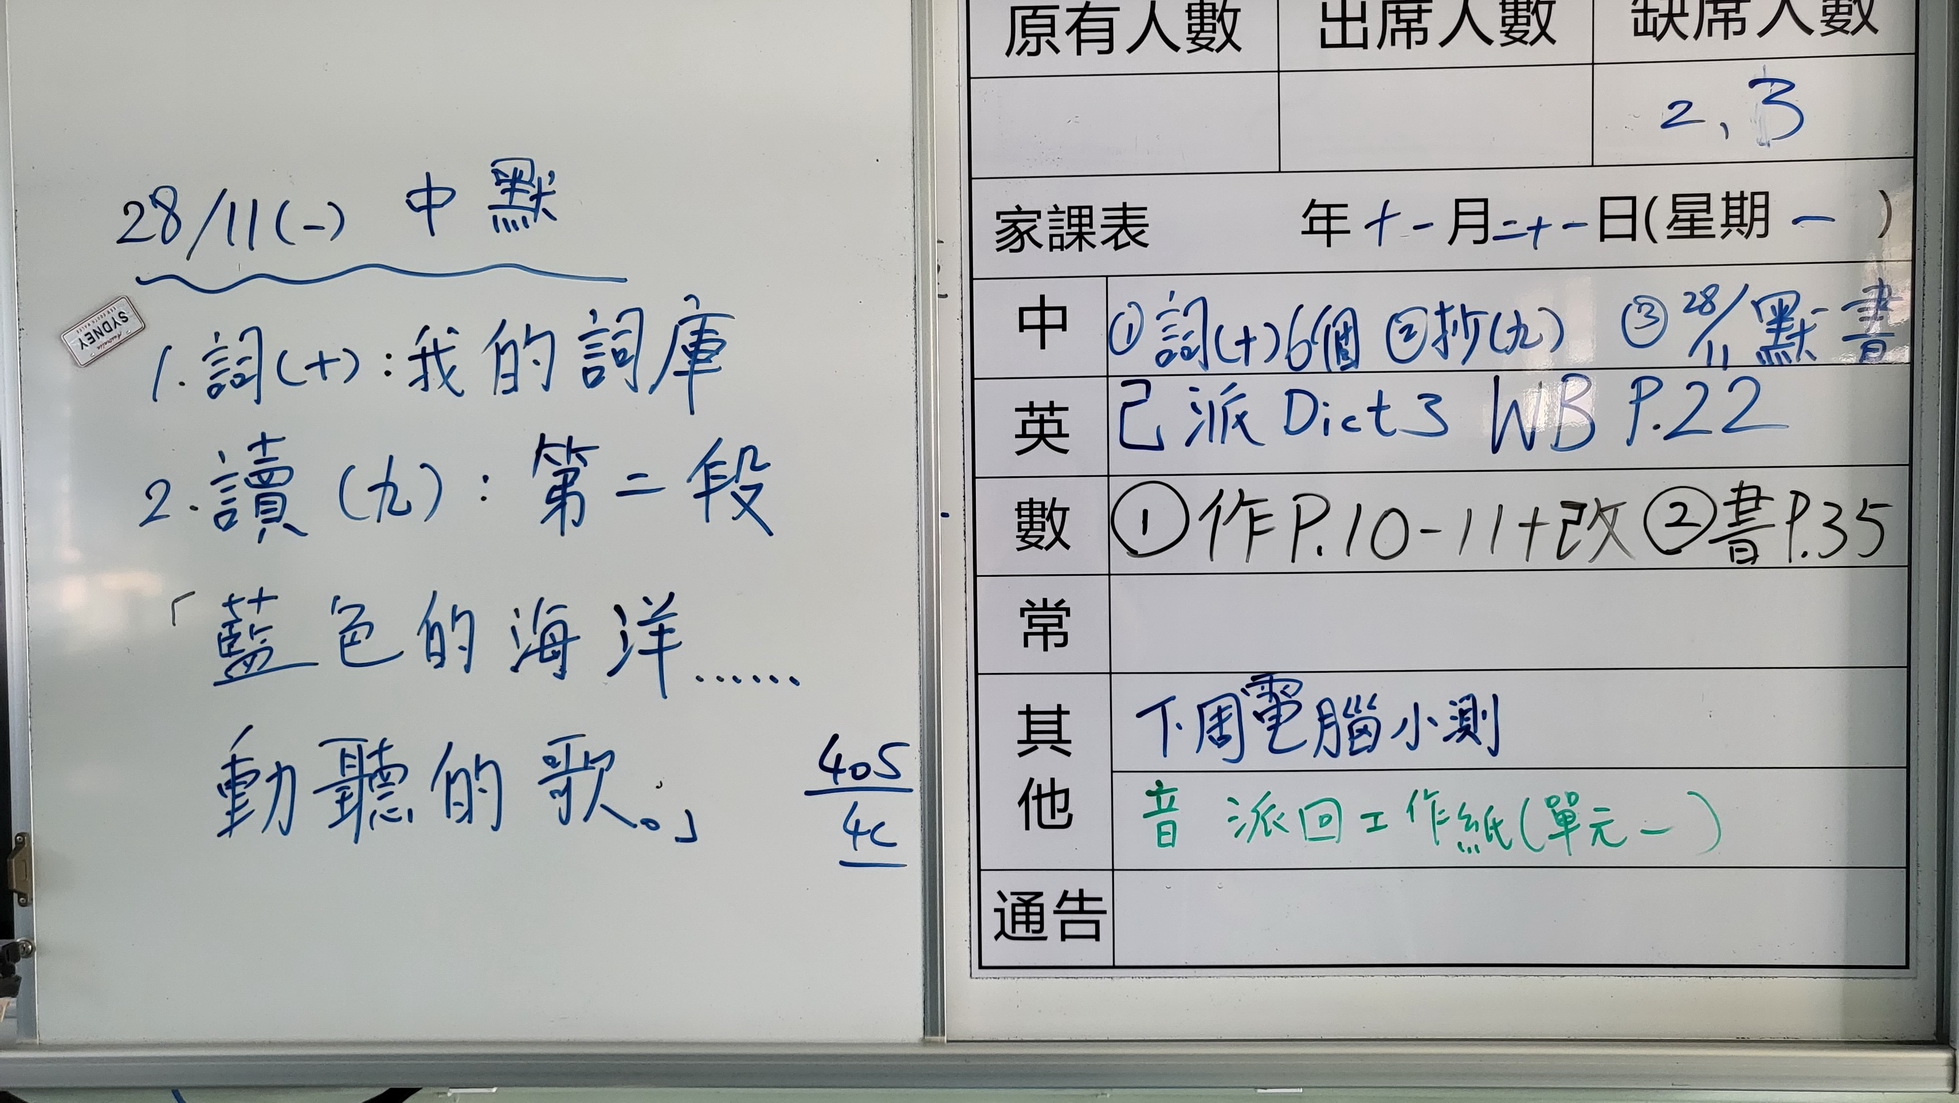 28/11(一) 中默
SYDNEY
1. 詞(十):我的詞庫
2. 讀(九):第二段
「藍色的海洋......
動聽的歌。」
405
4C
原有人數 出席人數 缺席人數
2、3
家課表 年十一月二十一日(星期一)
中 ①詞(十)6個 ②抄(九) ③28/11默書
英 己派 Dict 3 WB P.22
數 ①作P.10-11+改 ②書P.35
常
其他 下周電腦小測
音 派回工作紙(單元一)
通告